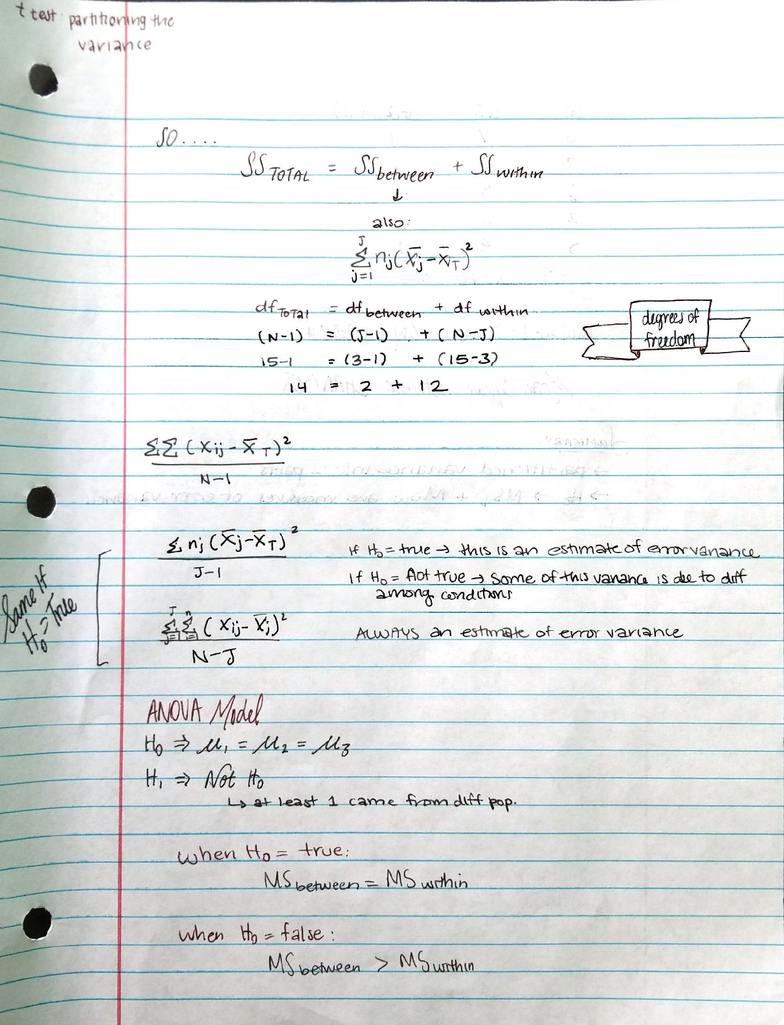 t test partitioning the
variance
SO....
SS TOTAL = SS between + SS within
↓
also:
J
Σ nj (X̄j - X̄T)²
j=1
df TOTAL = df between + df within
(N-1) = (J-1) + (N-J)
15-1 = (3-1) + (15-3)
14 = 2 + 12
degrees of
freedom
ΣΣ (Xij - X̄T)²
N-1
Σ nj (X̄j - X̄T)²
J-1
If H₀ = true → this is an estimate of error variance
If H₀ = Not true → Some of this variance is due to diff
among conditions
Same if
H₀ = True
ΣΣ (Xij - X̄j)²
N-J
ALWAYS an estimate of error variance
ANOVA Model
H₀ ⇒ μ₁ = μ₂ = μ₃
H₁ ⇒ Not H₀
↳ at least 1 came from diff pop.
when H₀ = true:
MS between = MS within
when H₀ = false:
MS between > MS within